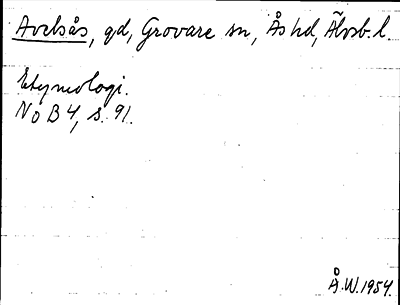 Avelsås, gd, Grovare sn, Ås hd, Älvsb. l.
Etymologi.
NoB 4, s. 91.
Å.W. 1954.